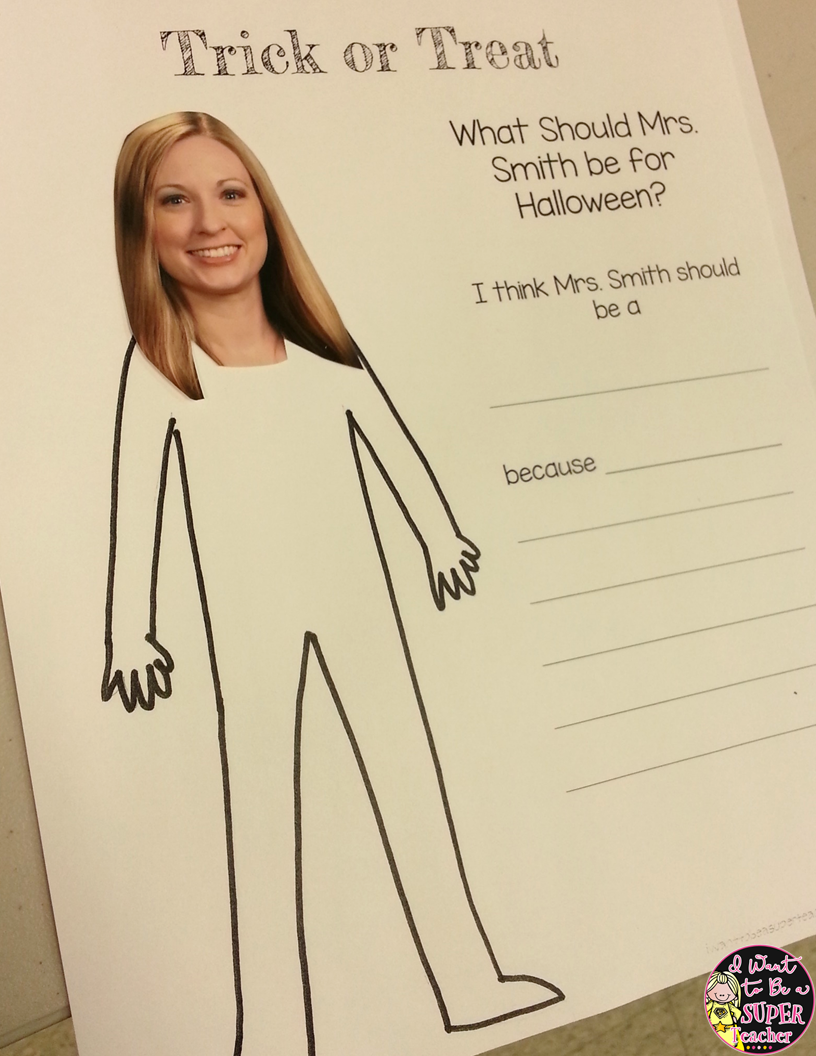 Trick or Treat
What Should Mrs.
Smith be for
Halloween?
I think Mrs. Smith should
be a
because
I Want
to Be a
SUPER
Teacher